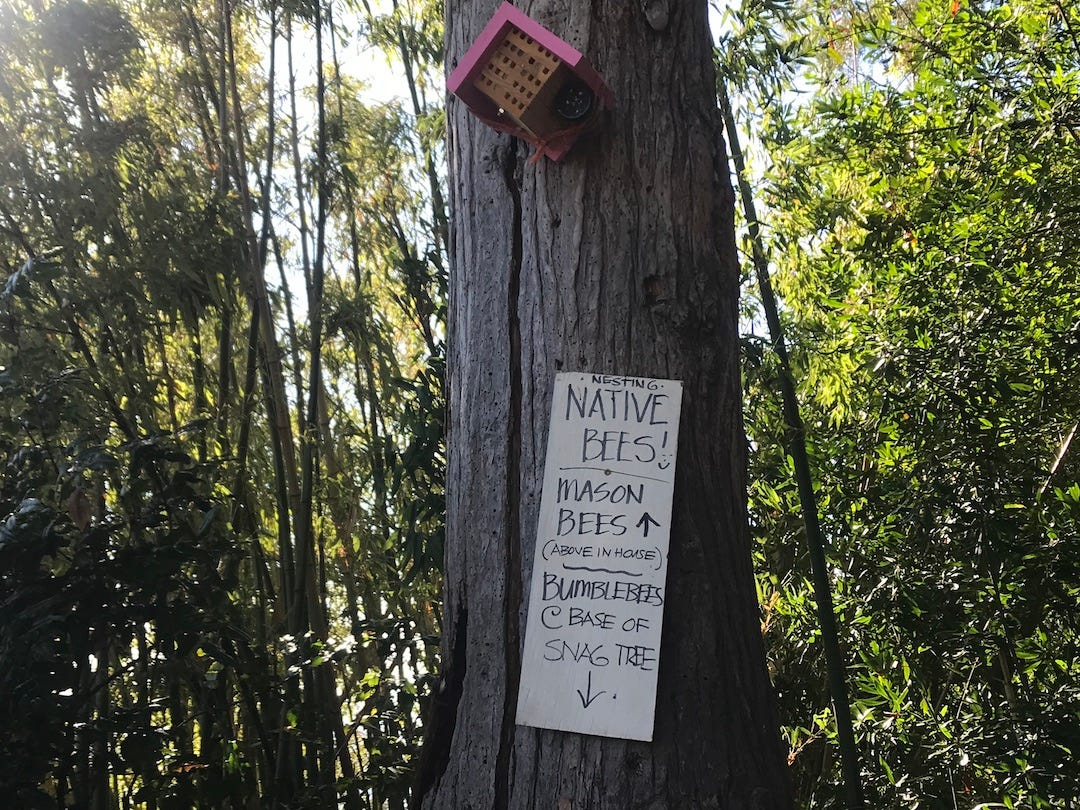 ·NESTING·
NATIVE
BEES!
MASON
BEES ↑
(ABOVE IN HOUSE)
BUMBLEBEES
@ BASE OF
SNAG TREE
↓